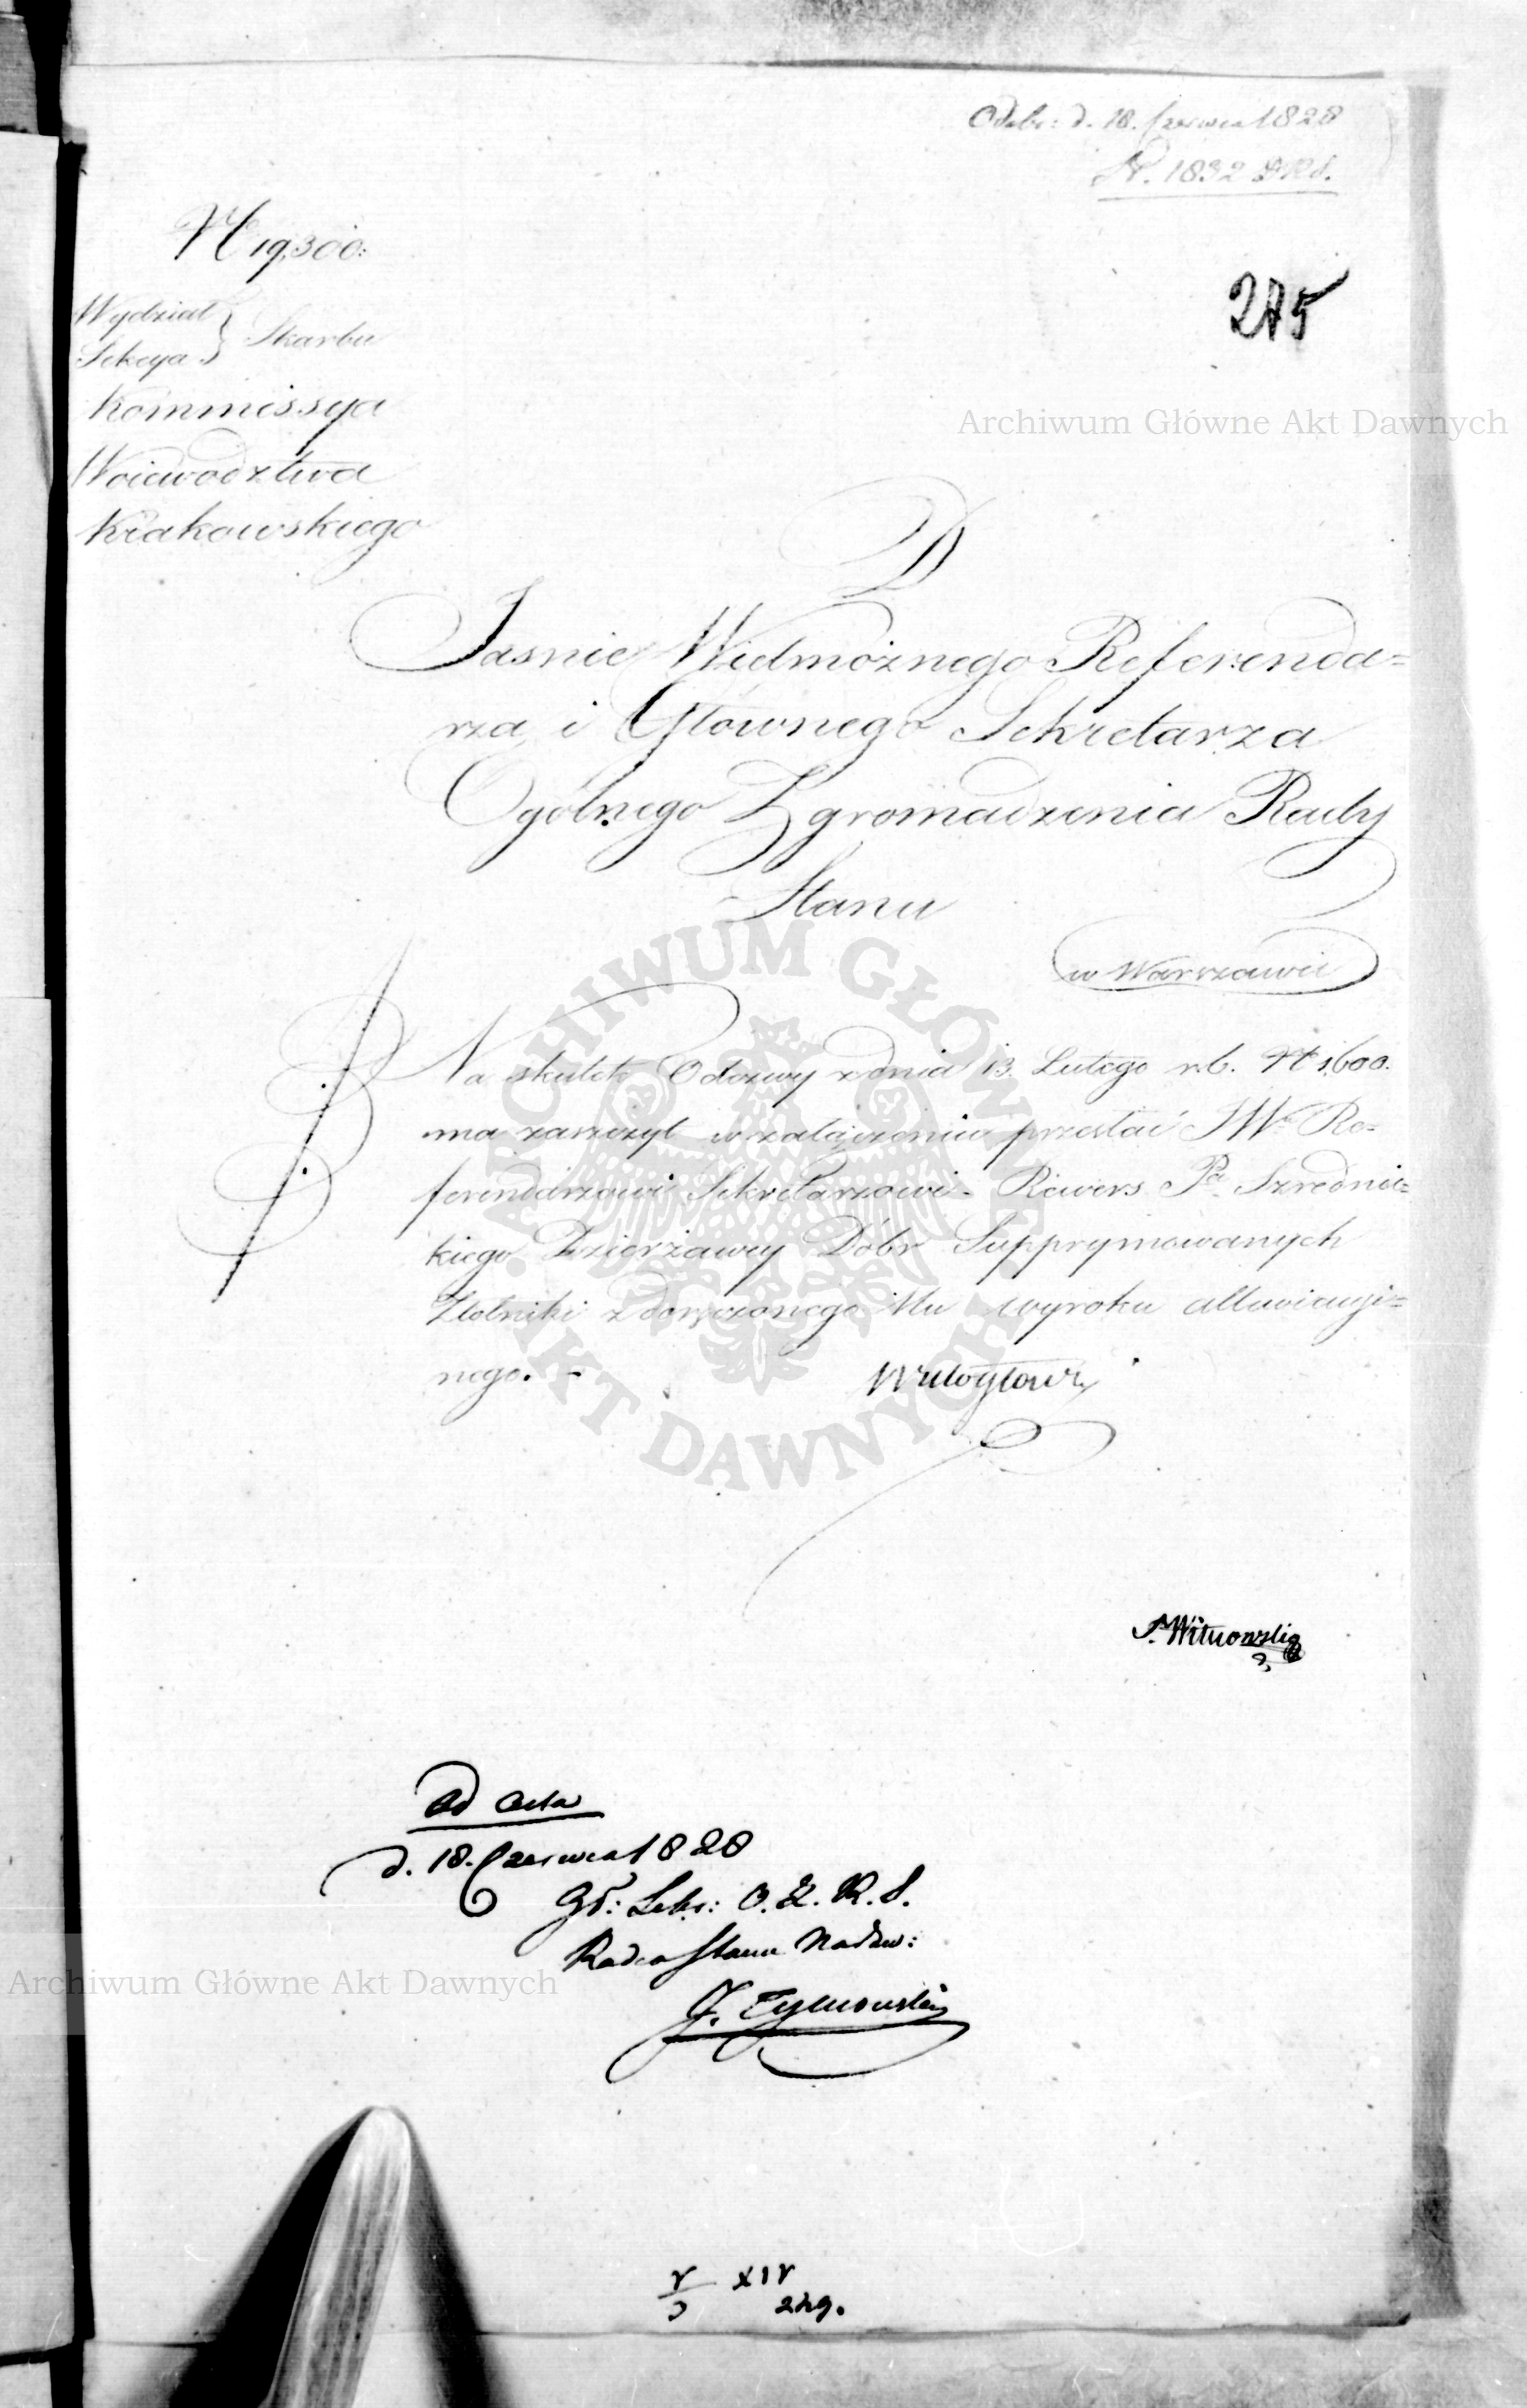 Odebr: d. 18. Czerwca 1828
N. 1832 
N 19,300:
275
Wydział } Skarbu
Sekcya
Kommissya
Woiewodztwa
Krakowskiego
Archiwum Główne Akt Dawnych
D
Jasnie Wielmożnego Referenda=
rza i Głównego Sekretarza
Ogólnego Zgromadzenia Rady
Stanu
w Warszawie
Na skutek Odezwy z dnia 13. Lutego r.b. N 1,600.
ma zaszczyt w załączeniu przesłać JW. Re=
ferendarzowi Sekretarzowi - Rewers Szrednic=
kiego Dzierżawcy Dóbr Supprymowanych
Złotniki z doręczonego Mu wyroku
nego. -
Wielogłowsk
ARCHIWUM GŁÓWNE
AKT DAWNYCH
Ad acta
d. 18. Czerwca 1828
Gł: Sekr: O. Z. R. S.
Radca Stanu Nadzw:
J. Tymowski
Archiwum Główne Akt Dawnych
XIV